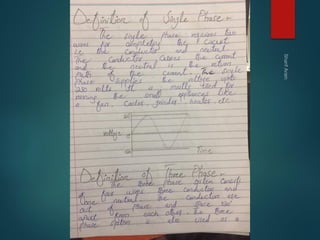 Definition of Single Phase:-
The single phase requires two
wires for completing the circuit
i.e the conductor and neutral.
The conductor carries the current
and the neutral is the return
path of the current. The single
phase supplies the voltage upto
230 volts. It is mostly used for
running the small appliances like
a fan, cooler, grinder, heater etc.
Voltage
Time
Definition of Three Phase:-
The three phase system consists
of four wires, three conductors and
one neutral. The conductors are
out of phase and space 120°
apart from each other. The three
phase system is also used as a
Sharif Khan